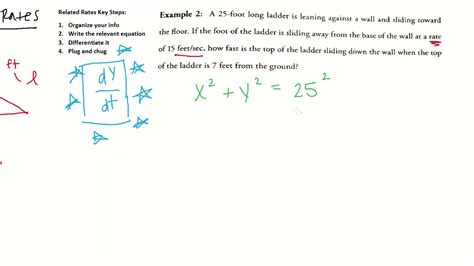 Rates
Related Rates Key Steps:
1. Organize your info
2. Write the relevant equation
3. Differentiate it
4. Plug and chug
Example 2: A 25-foot long ladder is leaning against a wall and sliding toward
the floor. If the foot of the ladder is sliding away from the base of the wall at a rate
of 15 feet/sec. how fast is the top of the ladder sliding down the wall when the top
of the ladder is 7 feet from the ground?
ft
l
dy
dt
x² + y² = 25²